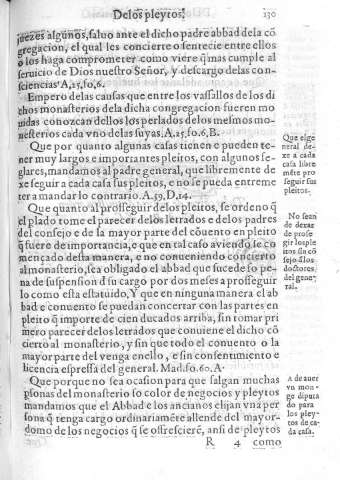 De los pleytos. 130
juezes algunos, saluo ante el dicho padre abbad dela cõ
gregacion, el qual les concierte o sentẽcie entre ellos
o los haga comprometer como viere q̃ mas cumple al
seruicio de Dios nuestro Señor, y descargo delas con-
sciencias A,15,fo,6.
Empero delas causas que entre los vassallos de los di
chos monasterios dela dicha congregacion fueren mo
uidas conozcan dellos los perlados delos mesmos mo-
nesterios cada vno delas suyas. A,25,fo.6,B.
Que por quanto algunas casas tienen e pueden te-
ner muy largos e importantes pleitos, con algunos se-
glares, mandamos al padre general, que libremente de
xe seguir a cada casa sus pleitos, e no se pueda entreme
ter a mandar lo contrario. A.59,D,14.
Que quanto al prosseguir delos pleitos, se ordeno q̃
el plado tome el parecer delos letrados e delos padres
del consejo e de la mayor parte del cõuento en pleito
q̃ fuere de importancia, e que en tal caso aviendo se co
mençado desta manera, e no conueniendo concierto
al monasterio, sea obligado el abbad que sucede so pe-
na de suspension d̃ su cargo por dos meses a prosseguir
lo como esta estatuido, Y que en ninguna manera el ab
bad e conuento se puedan concertar con las partes en
pleito q̃ importe de cien ducados arriba, sin tomar pri
mero parecer delos letrados que conuiene el dicho cõ
cierto al monasterio, y sin que todo el conuento o la
mayor parte del venga enello, e sin consentimiento e
licencia espressa del general. Mad.fo.60.A.
Que porque no sea ocasion para que salgan muchas
p̃sonas del monasterio so color de negocios y pleytos
mandamos que el Abbad e los ancianos elijan vna per
sona q̃ tenga cargo ordinariamẽte allende del mayor-
domo de los negocios q̃ se offrescierẽ, ansi de pleytos
R 4 como
Que el ge
neral de-
xe a cada
casa libre
mẽte pro
seguir sus
pleitos.
No sean
de dexar
de prose
gir los ple
itos sin cõ
sejo d̃ los
doctores
del gene
ral.
A de auer
vn mon-
ge diputa
do para
los pley-
tos de ca-
da casa.